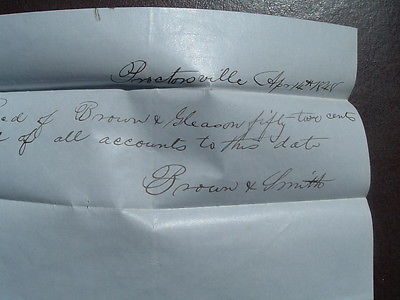 Proctorsville Apr 12th 1848
of Brown & Gleason fifty two cents
of all accounts to this date
Brown & Smith